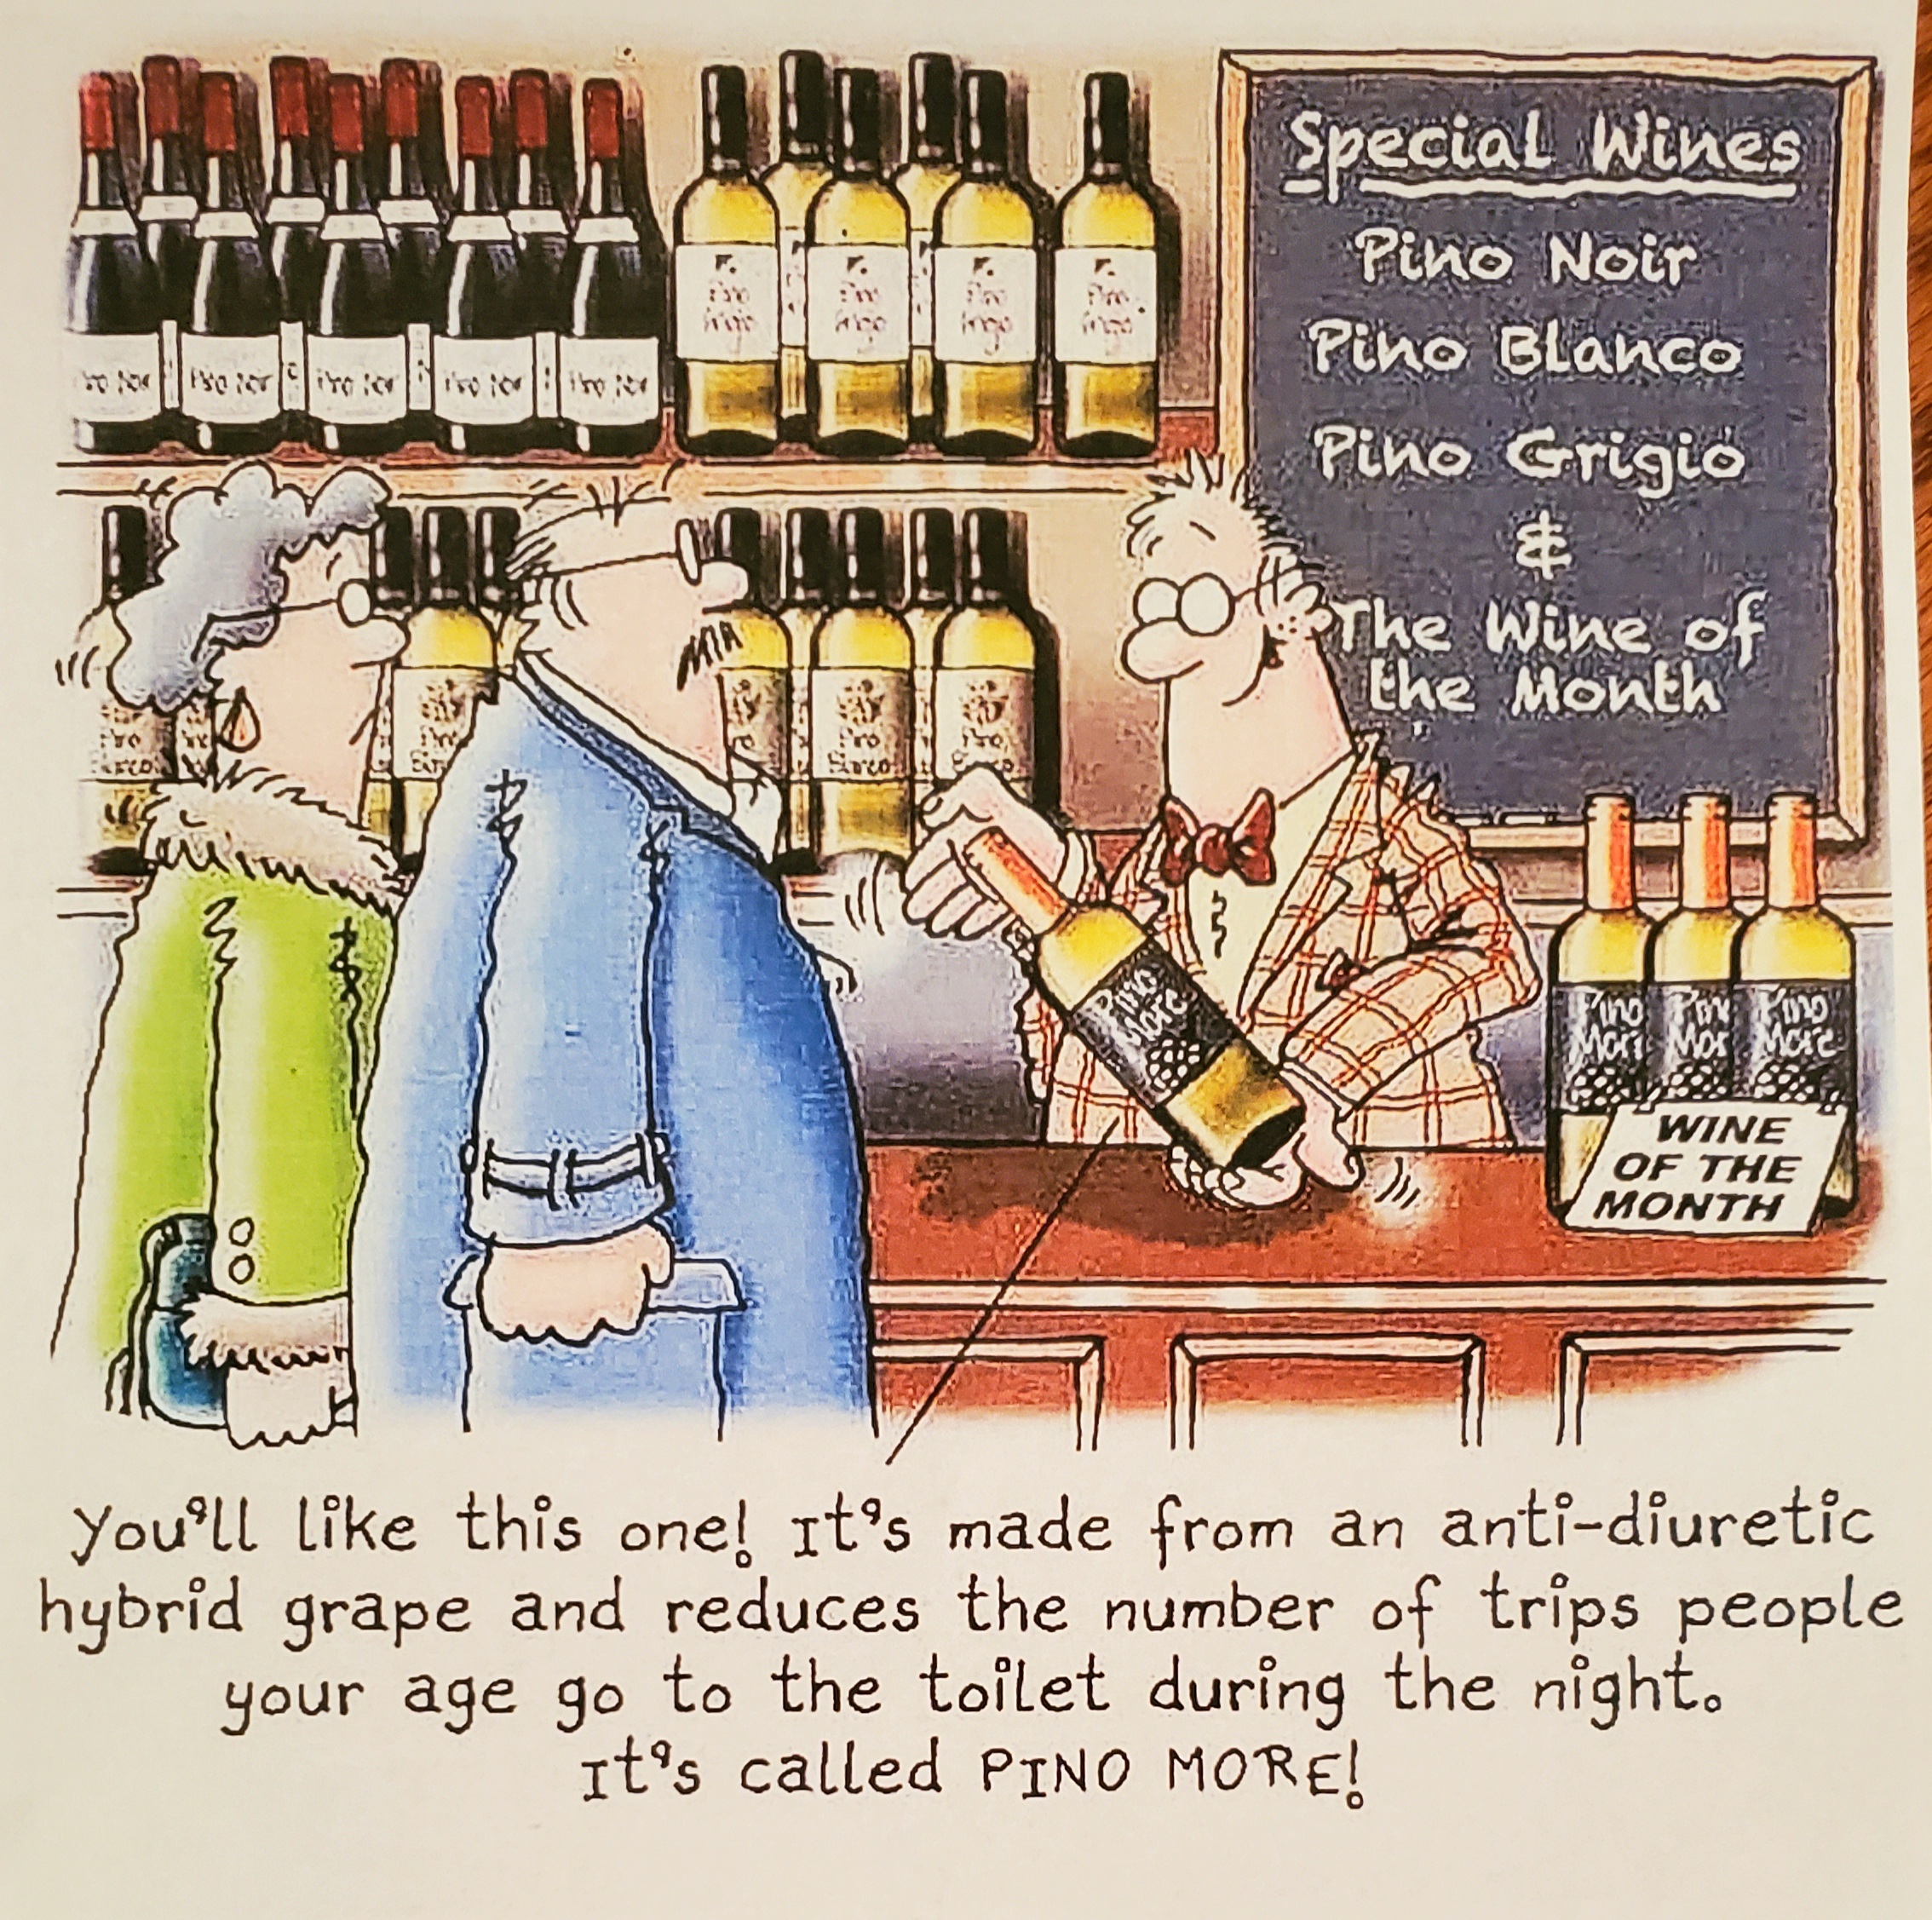 Special Wines
Pino Noir
Pino Blanco
Pino Grigio
&
The Wine of
the Month
Pino
More
Pino
Pino
More
WINE
OF THE
MONTH
You'll like this one! It's made from an anti-diuretic
hybrid grape and reduces the number of trips people
your age go to the toilet during the night.
It's called PINO MORE!